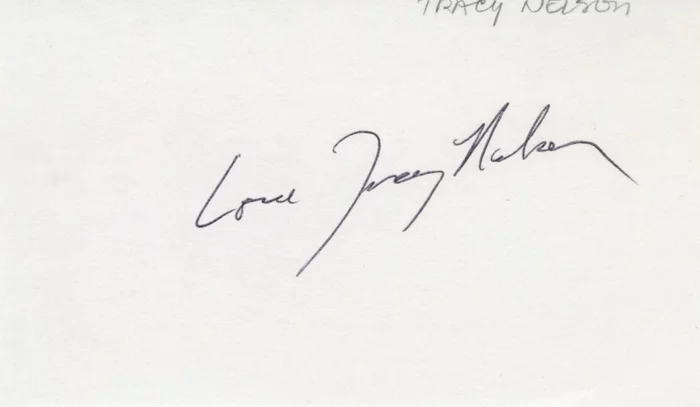 TRACY NELSON
Love Tracy Nelson